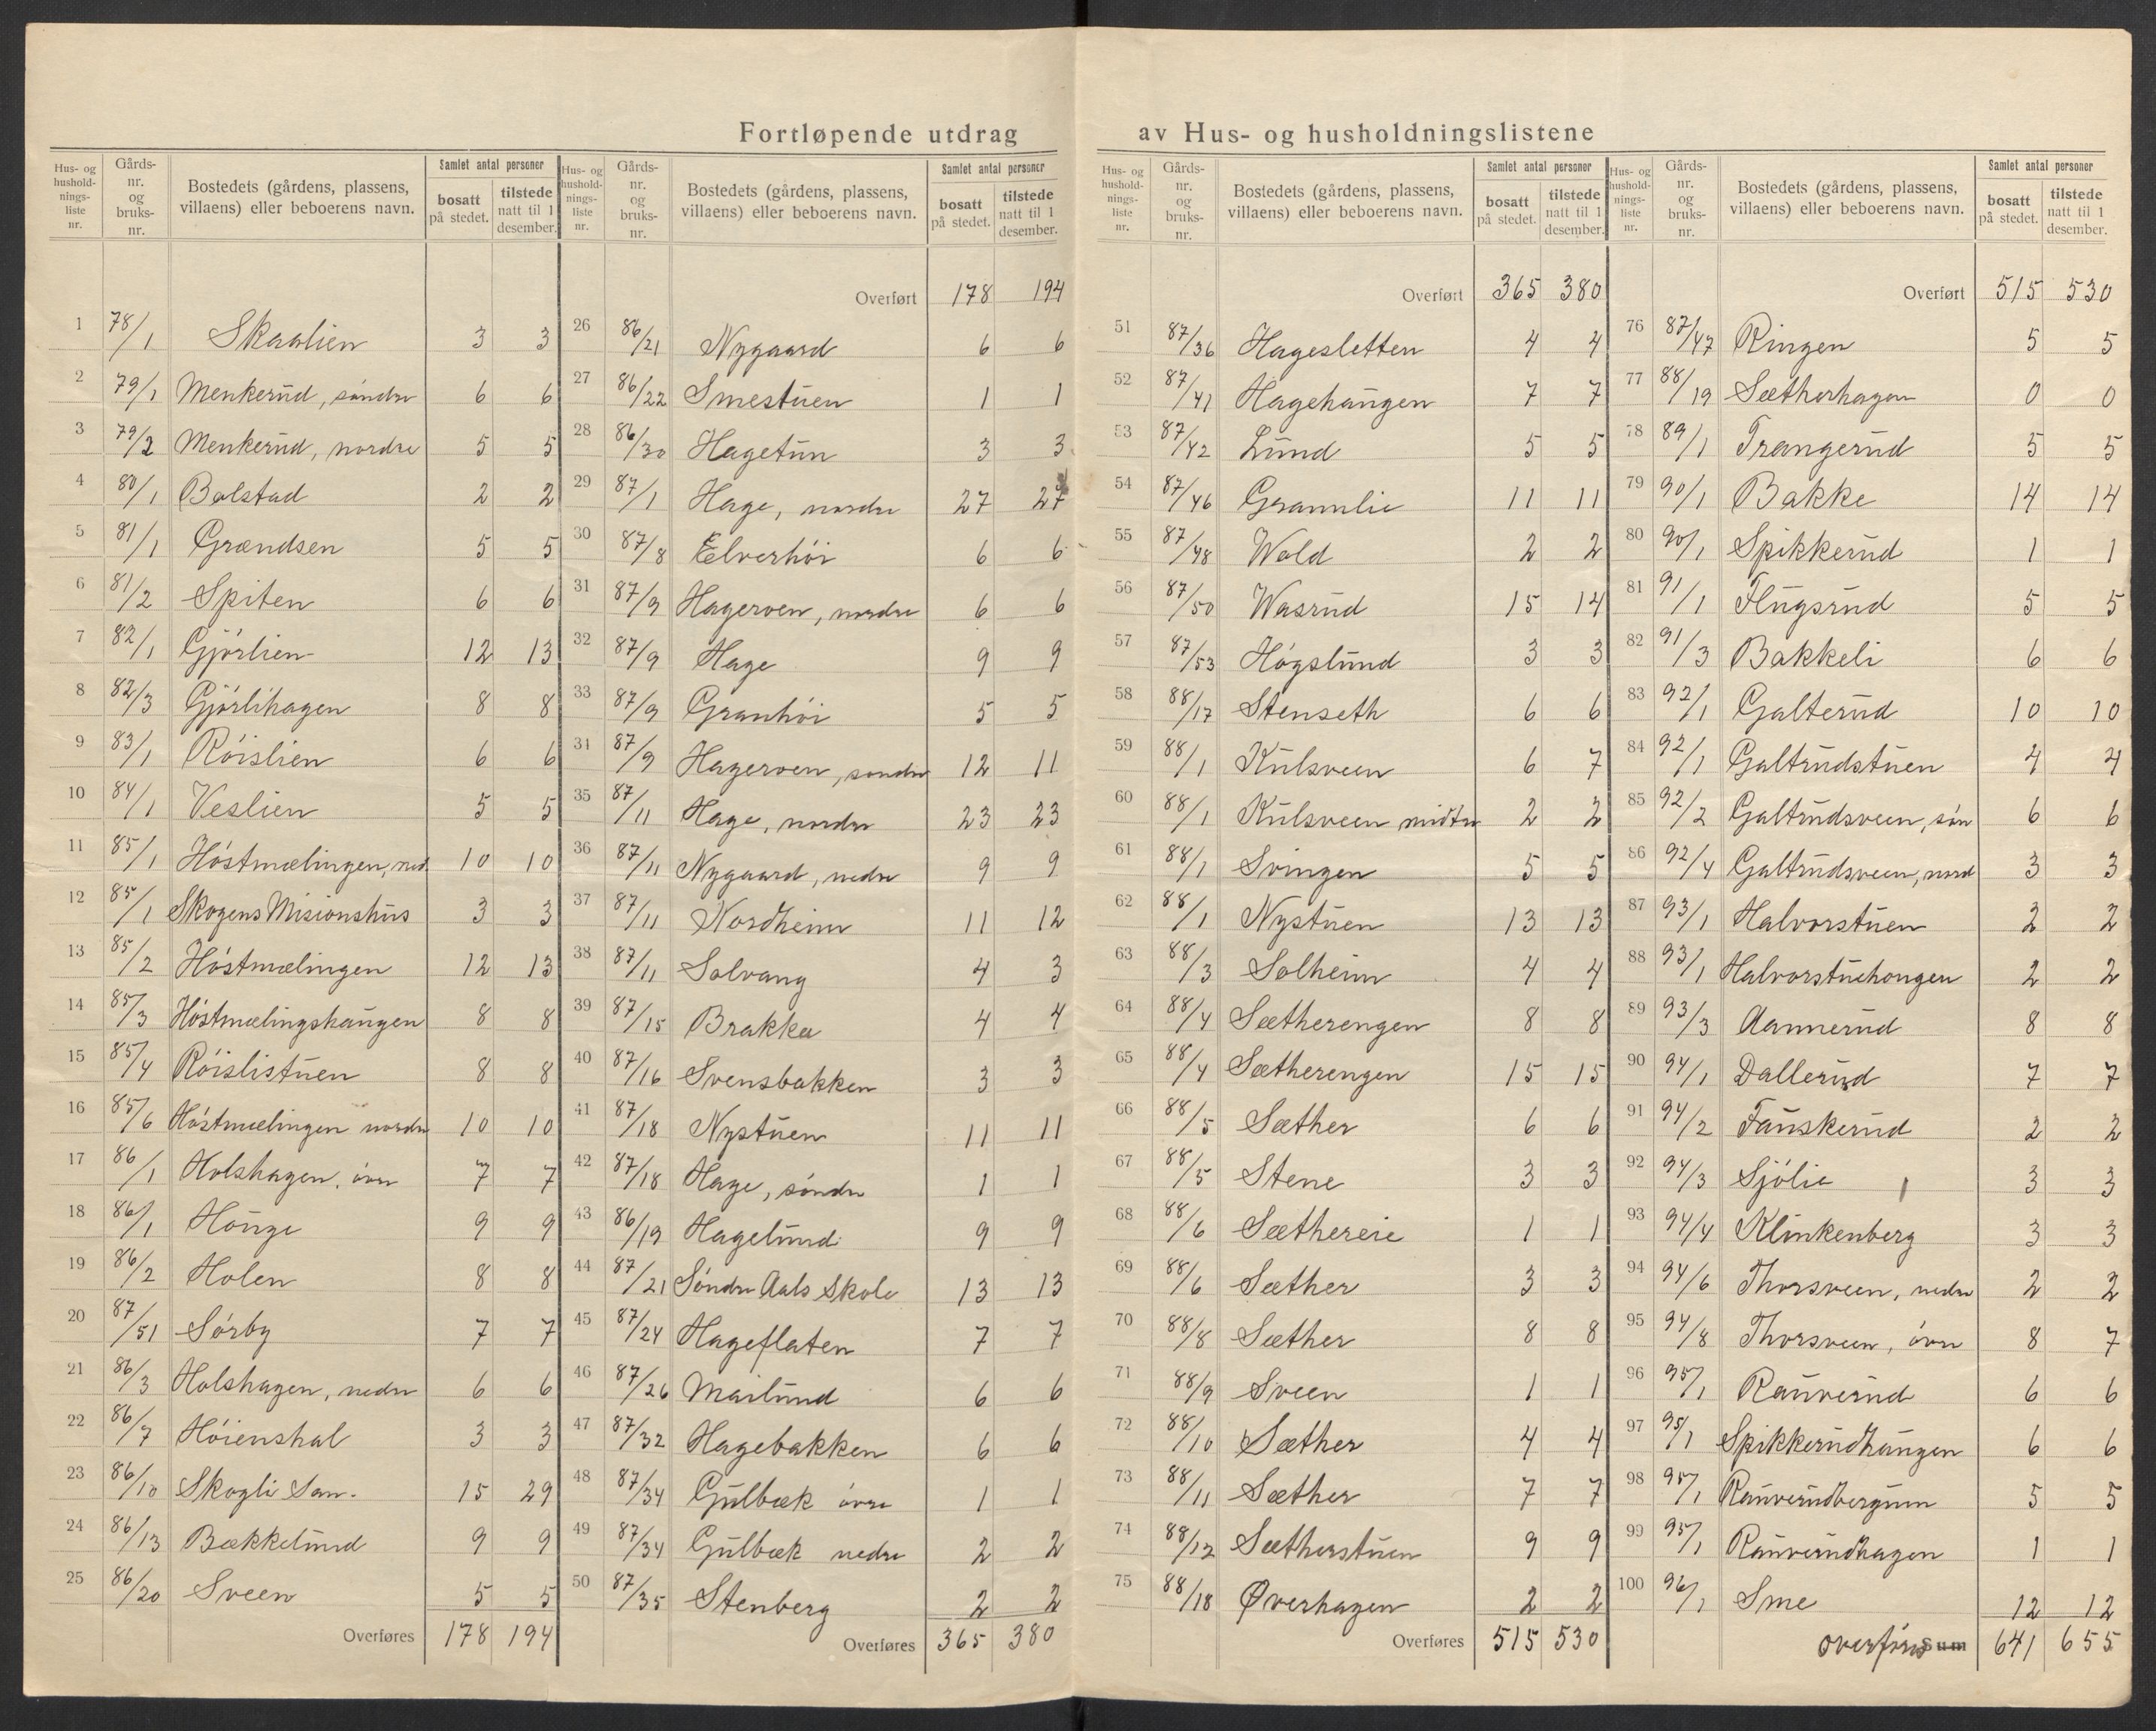 Fortløpende utdrag av Hus- og husholdningslistene
Hus- og husholdnings-liste nr. | Gårds-nr. og bruks-nr. | Bostedets (gårdens, plassens, villaens) eller beboerens navn. | Samlet antal personer | bosatt på stedet. | tilstede natt til 1 desember.
1 78/1 Skaalien 3 3
2 79/1 Menkerud, søndre 6 6
3 79/2 Menkerud, nordre 5 5
4 80/1 Bolstad 2 2
5 81/1 Grændsen 5 5
6 81/2 Spiten 6 6
7 82/1 Gjørlien 12 13
8 82/3 Gjørlihagen 8 8
9 83/1 Røislien 6 6
10 84/1 Veslien 5 5
11 85/1 Høstmælingen, ned. 10 10
12 85/1 Skogens Misionshus 3 3
13 85/2 Høstmælingen 12 13
14 85/3 Høstmælingshaugen 8 8
15 85/4 Røislistuen 8 8
16 85/6 Høstmælingen nordre 10 10
17 86/1 Holshagen, øvre 7 7
18 86/1 Hauge 9 9
19 86/2 Holen 8 8
20 87/51 Sørby 7 7
21 86/3 Holshagen, nedre 6 6
22 86/7 Høienshal 3 3
23 86/10 Skogli San. 15 29
24 86/13 Bækkelund 9 9
25 86/20 Sveen 5 5
Overføres 178 194
Hus- og husholdnings-liste nr. | Gårds-nr. og bruks-nr. | Bostedets (gårdens, plassens, villaens) eller beboerens navn. | Samlet antal personer | bosatt på stedet. | tilstede natt til 1 desember.
Overført 178 194
26 86/21 Nygaard 6 6
27 86/22 Smestuen 1 1
28 86/30 Hagetun 3 3
29 87/1 Hage, nordre 27 27
30 87/8 Elverhøi 6 6
31 87/9 Hagerven, nordre 6 6
32 87/9 Hage 9 9
33 87/9 Granhøi 5 5
34 87/9 Hagerven, søndre 12 11
35 87/11 Hage, nordre 23 23
36 87/11 Nygaard, nedre 9 9
37 87/11 Nordheim 11 12
38 87/11 Solvang 4 3
39 87/15 Brakka 4 4
40 87/16 Svensbakken 3 3
41 87/18 Nystuen 11 11
42 87/18 Hage, søndre 1 1
43 86/19 Hagelund 9 9
44 87/21 Søndre Aals Skole 13 13
45 87/24 Hageflaten 7 7
46 87/26 Mailund 6 6
47 87/32 Hagebakken 6 6
48 87/34 Gulbæk øvre 1 1
49 87/34 Gulbæk nedre 2 2
50 87/35 Stenberg 2 2
Overføres 365 380
Hus- og husholdnings-liste nr. | Gårds-nr. og bruks-nr. | Bostedets (gårdens, plassens, villaens) eller beboerens navn. | Samlet antal personer | bosatt på stedet. | tilstede natt til 1 desember.
Overført 365 380
51 87/36 Hagesletten 4 4
52 87/41 Hagehaugen 7 7
53 87/42 Lund 5 5
54 87/46 Grannlie 11 11
55 87/48 Wold 2 2
56 87/50 Wasrud 15 14
57 87/53 Høgslund 3 3
58 88/17 Stenseth 6 6
59 88/1 Kulsveen 6 7
60 88/1 Kulsveen midtre 2 2
61 88/1 Svingen 5 5
62 88/1 Nystuen 13 13
63 88/3 Solheim 4 4
64 88/4 Sætherengen 8 8
65 88/4 Sætherengen 15 15
66 88/5 Sæther 6 6
67 88/5 Stene 3 3
68 88/6 Sæthereie 1 1
69 88/6 Sæther 3 3
70 88/8 Sæther 8 8
71 88/9 Sveen 1 1
72 88/10 Sæther 4 4
73 88/11 Sæther 7 7
74 88/12 Sætherstuen 9 9
75 88/18 Øverhagen 2 2
Overføres 515 530
Hus- og husholdnings-liste nr. | Gårds-nr. og bruks-nr. | Bostedets (gårdens, plassens, villaens) eller beboerens navn. | Samlet antal personer | bosatt på stedet. | tilstede natt til 1 desember.
Overført 515 530
76 87/47 Ringen 5 5
77 88/19 Sætherhagen 0 0
78 89/1 Trangerud 5 5
79 90/1 Bakke 14 14
80 90/1 Spikkerud 1 1
81 91/1 Flugsrud 5 5
82 91/3 Bakkeli 6 6
83 92/1 Galterud 10 10
84 92/1 Galtrudstuen 4 4
85 92/2 Galtrudsveen, søn 6 6
86 92/4 Galtrudsveen, nord 3 3
87 93/1 Halvorstuen 2 2
88 93/1 Halvorstuehongen 2 2
89 93/3 Aannerud 8 8
90 94/1 Dallerud 7 7
91 94/2 Fauskerud 2 2
92 94/3 Sjølie 3 3
93 94/4 Klinkenberg 3 3
94 94/6 Thorsveen, nedre 2 2
95 94/8 Thorsveen, øvre 8 7
96 95/1 Rauverud 6 6
97 95/1 Spikkerudhaugen 6 6
98 95/1 Rauverudbergum 5 5
99 95/1 Rauverudhagen 1 1
100 96/1 Sme 12 12
overføres Sum 641 655